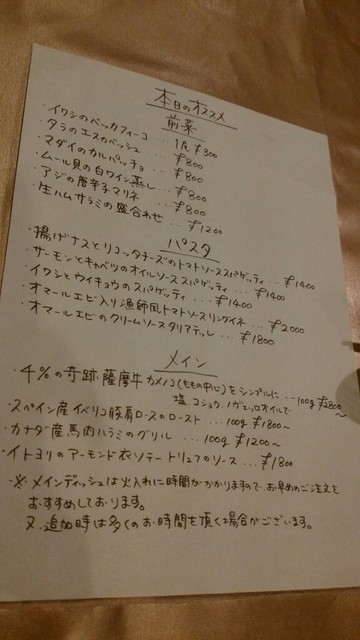 本日のオススメ
前菜
・イワシのベッカフィーコ ... 1尾 ¥300
・タラのエスカベッシュ ... ¥800
・マダイのカルパッチョ ... ¥800
・ムール貝の白ワイン蒸し ... ¥800
・アジの唐辛子マリネ ... ¥800
・生ハムサラミの盛合わせ ... ¥1200
パスタ
・揚げナスとリコッタチーズのトマトソーススパゲッティ ... ¥1400
・サーモンとキャベツのオイルソーススパゲッティ ... ¥1400
・イワシとウイキョウのスパゲッティ ... ¥1400
・オマールエビ入り漁師風トマトソースリングイネ ... ¥2000
・オマールエビのクリームソースタリアテッレ ... ¥1800
メイン
・4%の奇跡 薩摩牛カメノコ(ももの中心)をシンプルに ... 100g ¥2800～
塩、コショウ、ノヴェッロオイルで
・スペイン産イベリコ豚肩ロースのロースト ... 100g ¥1800～
・カナダ産馬肉ハラミのグリル ... 100g ¥1200～
・イトヨリのアーモンド衣ソテー トリュフのソース ... ¥1800
・※メインディッシュは火入れに時間がかかりますので、お早めのご注文を
おすすめしております。
又、追加時は多くのお時間を頂く場合がございます。